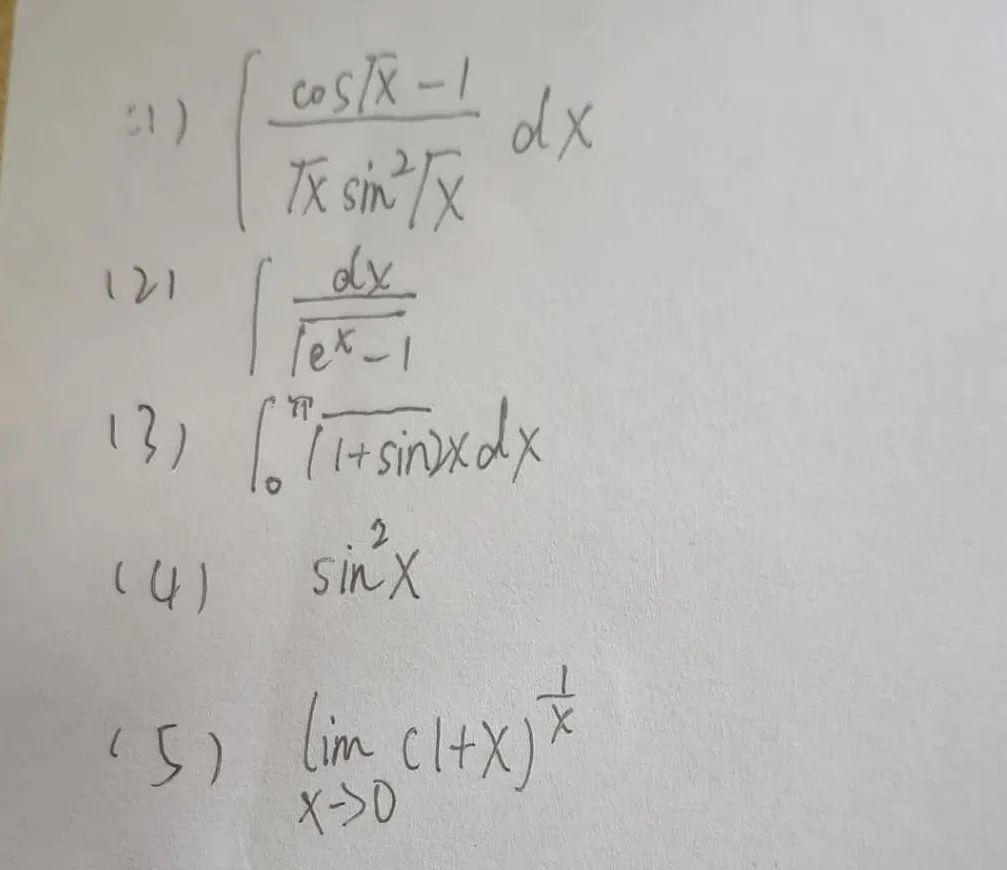 (1) ∫ (cos√x − 1)/(√x sin²√x) dx
(2) ∫ dx/√(eˣ − 1)
(3) ∫₀^π √(1+sin2x) dx
(4) sin²x
(5) lim_{x→0} (1+x)^{1/x}